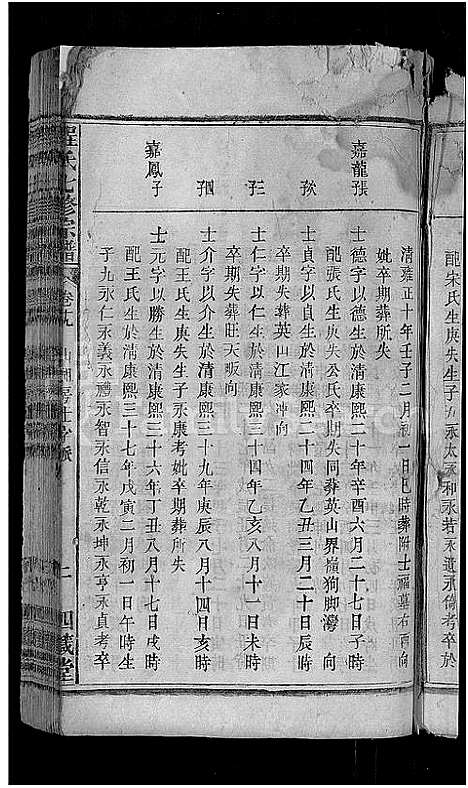 配宋氏生庚失生子永太永和永若永道永倫考卒於
清雍正十年壬子二月初一日巳時葬附士福墓右酉向
妣卒期葬所失
嘉龍長
士德字以德生於清康熙二十年辛酉六月二十七日子時
配張氏生庚失公氏卒期失同葬英山界橫狗腳灣 向
次
士貞字以貞生於清康熙二十四年乙丑三月二十日辰時
卒期失葬英山江家冲向
三
士仁字以仁生於清康熙三十四年乙亥八月十一日未時
卒期失葬旺天畈向
四
士介字以介生於清康熙三十九年庚辰八月十四日亥時
配王氏生庚失生子永康考妣卒期葬所失
嘉鳳子
士元字以勝生於清康熙三十六年丁丑八月十七日戌時
配王氏生於清康熙三十七年戊寅二月初一日午時生
子九永仁永義永禮永智永信永乾永坤永亨永貞考卒
氏七修宗譜
卷九
堂